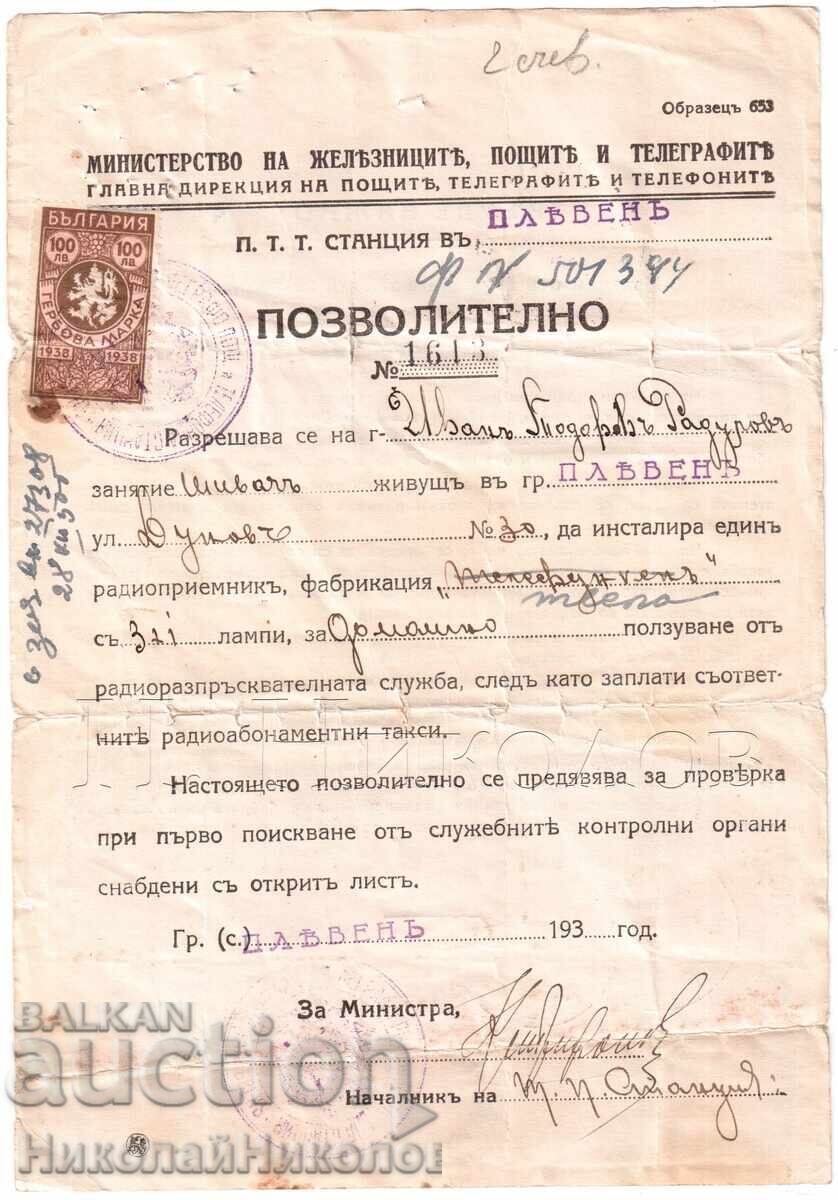 Образецъ 653
МИНИСТЕРСТВО НА ЖЕЛѢЗНИЦИТѢ, ПОЩИТѢ И ТЕЛЕГРАФИТѢ
ГЛАВНА ДИРЕКЦИЯ НА ПОЩИТѢ, ТЕЛЕГРАФИТѢ И ТЕЛЕФОНИТѢ
П. Т. Т. СТАНЦИЯ ВЪ ПЛѢВЕНЪ
БЪЛГАРИЯ
100 ЛВ. 100 ЛВ.
ГЕРБОВА МАРКА
1938 1938
501384
ПОЗВОЛИТЕЛНО
№ 1613
Разрешава се на г- Иванъ Тодоровъ Радуловъ
занятие Шивачъ живущъ въ гр. ПЛѢВЕНЪ
ул. Дуновъ № 30, да инсталира единъ
радиоприемник, фабрикация „Телефункенъ"
съ 3+1 лампи, за Домашно ползуване отъ
радиоразпръсквателната служба, следъ като заплати съответ-
нитѣ радиоабонаментни такси.
Н. Николов
Настоящето позволително се предявява за провѣрка
при първо поискване отъ служебнитѣ контролни органи
снабдени съ открить листъ.
Гр. (с.) ПЛѢВЕНЪ 193 год.
За Министра,
Началникъ на Т. П. Станция:
BALKAN
auction
НиколайНиколов